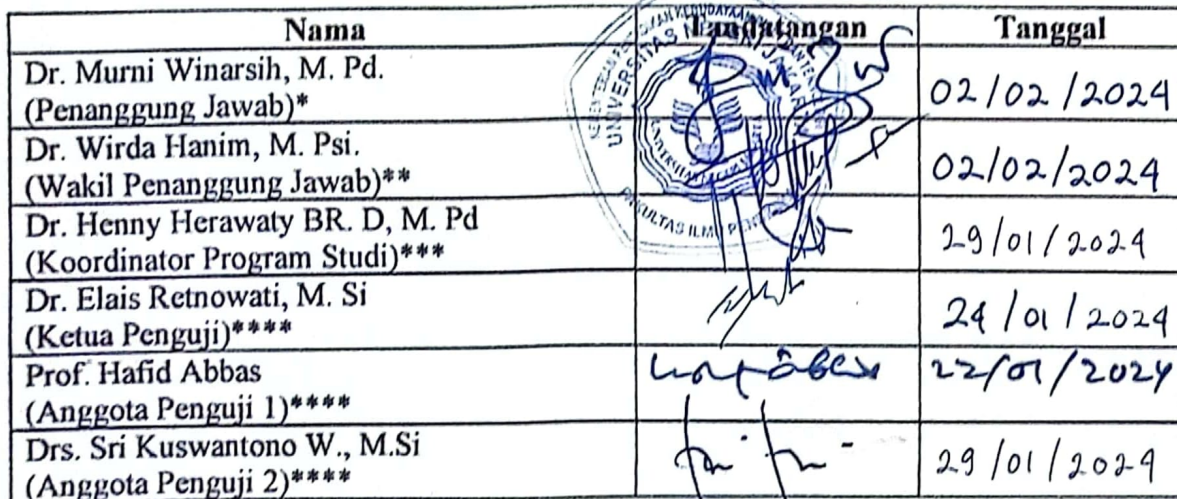 Nama Tandatangan Tanggal
Dr. Murni Winarsih, M. Pd.
(Penanggung Jawab)* 02/02/2024
Dr. Wirda Hanim, M. Psi.
(Wakil Penanggung Jawab)** 02/02/2024
Dr. Henny Herawaty BR. D, M. Pd
(Koordinator Program Studi)*** 29/01/2024
Dr. Elais Retnowati, M. Si
(Ketua Penguji)**** 24/01/2024
Prof. Hafid Abbas
(Anggota Penguji 1)**** 22/01/2024
Drs. Sri Kuswantono W., M.Si
(Anggota Penguji 2)**** 29/01/2024
UNIVERSITAS NEGERI JAKARTA
FAKULTAS ILMU